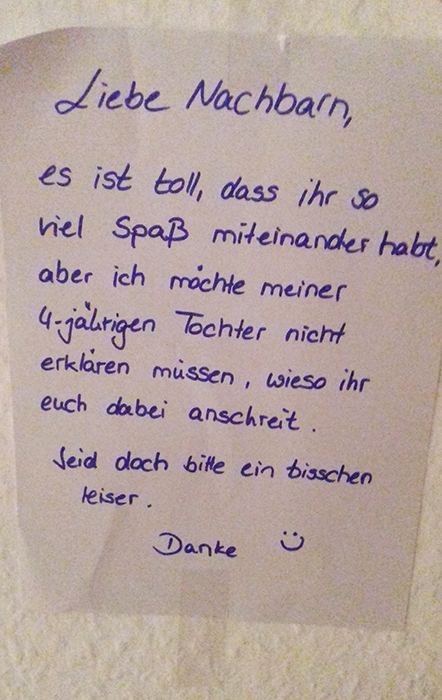 Liebe Nachbarn,
es ist toll, dass ihr so
viel Spaß miteinander habt,
aber ich möchte meiner
4-jährigen Tochter nicht
erklären müssen, wieso ihr
euch dabei anschreit.
Seid doch bitte ein bisschen
leiser.
Danke ☺